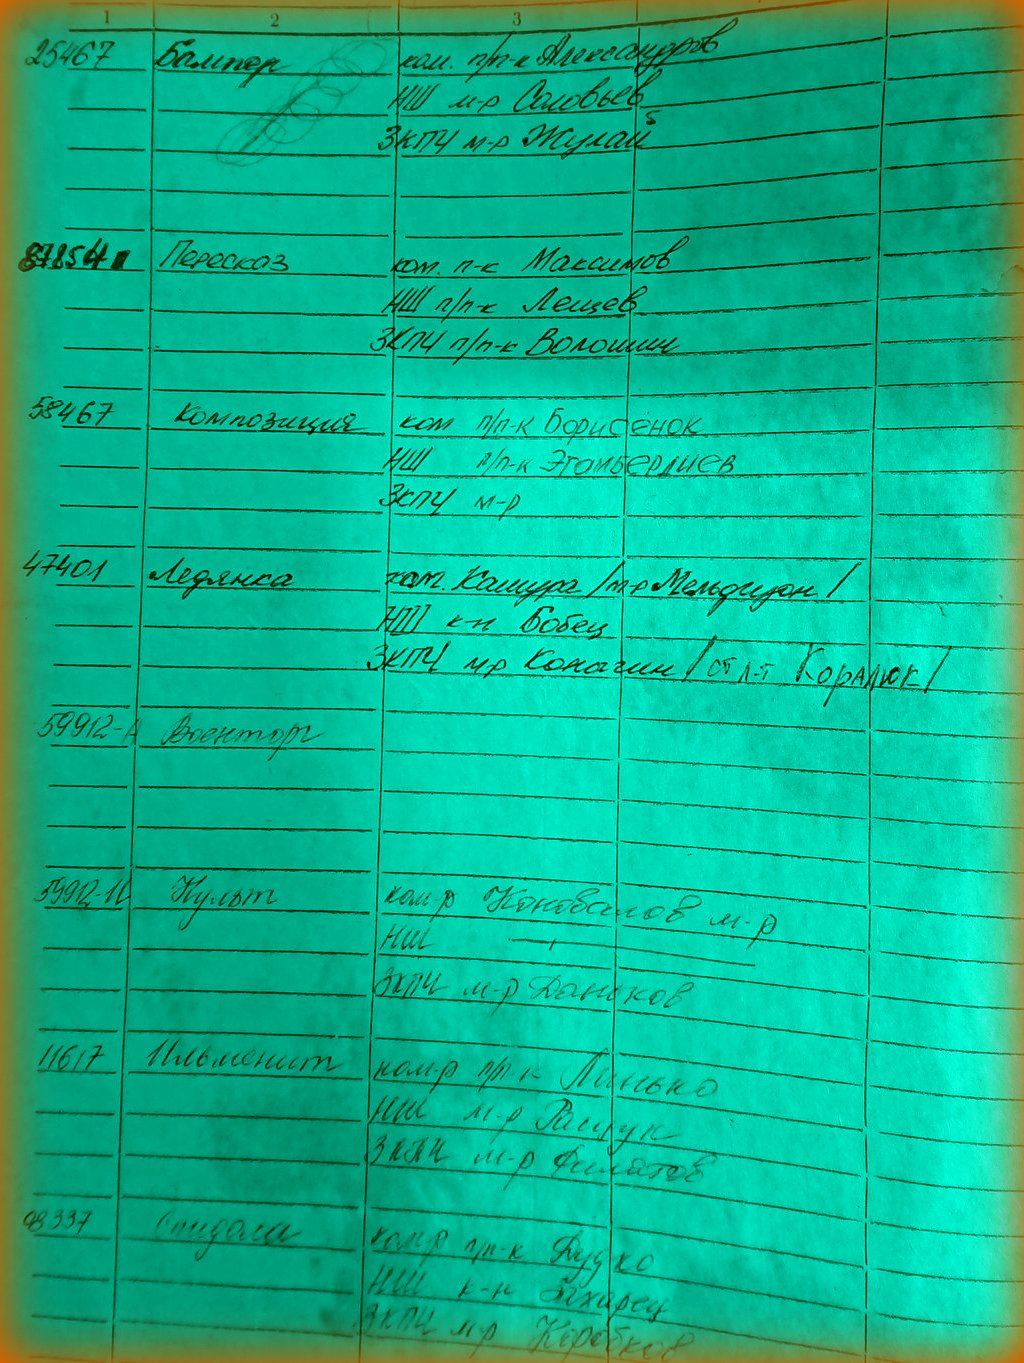 1 2 3
25467 Бампер ком. п/п-к Александров
НШ м-р Соловьев
ЗКПЧ м-р Жулай
Пересказ ком. п-к Максимов
НШ п/п-к Лещев
ЗКПЧ п/п-к Волошин
58467 Композиция ком п/п-к Борисёнок
НШ п/п-к Этомбердиев
ЗКПЧ м-р
47401 Ледянка ком. Камура /м-р Мельдизон/
НШ к-н Бобец
ЗКПЧ м-р Коначин /ст л-т Коралюк/
59912-А Военторг
Культ ком-р Коновалов м-р
НШ
ЗКПЧ м-р Даньков
11617 Ильменит ком-р п/п-к Линько
НШ м-р Ращук
ЗКПЧ м-р Филатов
98337 Спидола ком-р п/п-к Дудко
НШ к-н
ЗКПЧ м-р Коробков